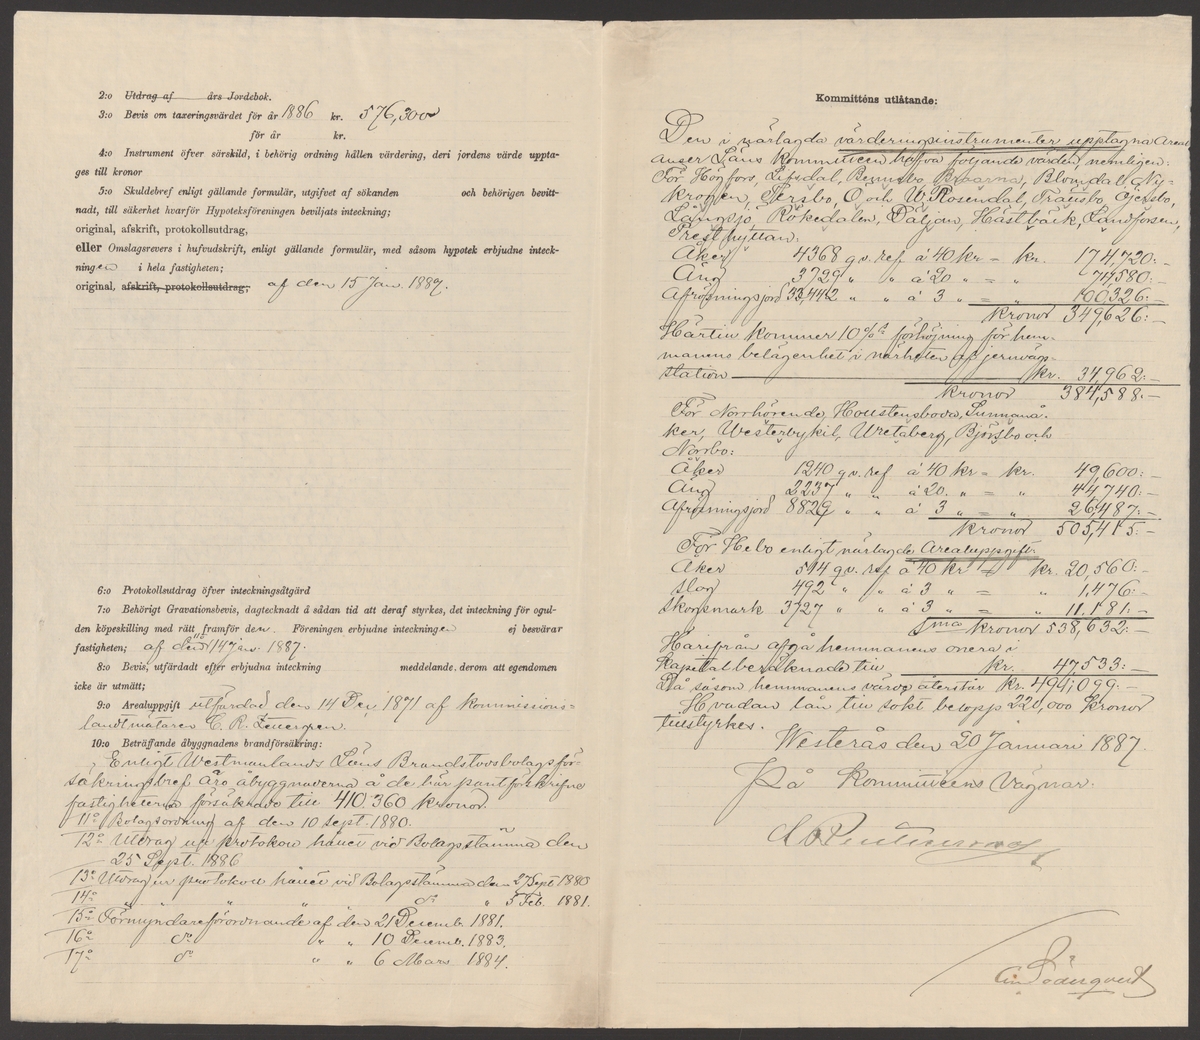 2:o Utdrag af års Jordebok.
3:o Bevis om taxeringsvärdet för år 1886 kr. 576,300
för år kr.
4:o Instrument öfver särskild, i behörig ordning hållen värdering, deri jordens värde uppta-
ges till kronor
5:o Skuldebref enligt gällande formulär, utgifvet af sökanden och behörigen bevitt-
nadt, till säkerhet hvarför Hypoteksföreningen beviljats inteckning;
original, afskrift, protokollsutdrag,
eller Omslagsrevers i hufvudskrift, enligt gällande formulär, med såsom hypotek erbjudne inteck-
ningen i hela fastigheten;
original, afskrift, protokollsutdrag; af den 15 Jan. 1887.
6:o Protokollsutdrag öfver inteckningsåtgärd
7:o Behörigt Gravationsbevis, dagtecknadt å sådan tid att deraf styrkes, det inteckning för ogul-
den köpeskilling med rätt framför den Föreningen erbjudne inteckningen ej besvärar
fastigheten; af den 14 Jan. 1887.
8:o Bevis, utfärdadt efter erbjudna inteckning meddelande, derom att egendomen
icke är utmätt;
9:o Arealuppgift utfärdad den 14 Dec. 1871 af Kommissions-
landtmätaren C. R.
10:o Beträffande åbyggnadens brandförsäkring:
Enligt Westmanlands Läns Brandstodsbolags för-
säkringsbref äro åbyggnaderna å de här pantförskrifne
fastigheterna försäkrade till 410.360 kronor.
11o Bolagsordning af den 10 Sept. 1880.
12o Utdrag ur protokoll hållet vid Bolagsstämma den
25 Sept. 1886
13o Utdrag ur protokoll hållet vid Bolagsstämma den 27 Sept 1880
14o " " " do " 5 Feb. 1881.
15o Förmyndareförordnande af den 21 Decemb. 1881.
16o do " " 10 Decemb. 1883.
17o do " " 6 Mars 1884.
Kommitténs utlåtande:
Den i närlagda värderingsinstrumenter upptagna Areal
anser Läns Kommittéen hafva följande värden, nemligen:
För Högfors, Lifsdal, Bennsbo, Braarna, Blomdal, Ny-
krogen, Persbo, O och W. Rosendal, Träsbo, Ojersbo,
Långsjö, Rökedalen, Däljan, Hästbäck, Landforsen,
Presthyttan.
Åker 4368 qv. ref à 40 kr = kr. 174,720:—
Äng 3729 " " à 20 " = " 74,580:—
Afrösningsjord 33,442 " " à 3 " = " 100,326:—
Kronor 349,626:—
Härtill kommer 10% förhöjning för hem-
manens belägenhet i närheten af jernvägs-
station kr. 34,962:—
Kronor 384,588:—
För Norrhörende, Houstensboda, Sunnanå-
ker, Westerbykil, Wretaberg, Björsbo och
Norrbo:
Åker 1240 qv. ref à 40 kr = kr. 49,600:—
Äng 2237 " " à 20 " = " 44,740:—
Afrösningsjord 8829 " " à 3 " = " 26,487:—
Kronor 505,415:—
För Hebo enligt närlagde Arealuppgift:
Åker 514 qv. ref à 40 kr = kr. 20,560:—
slog 492 " " à 3 " = " 1,476:—
Skogsmark 3727 " " à 3 " = " 11,181:—
Sma Kronor 538,632:—
Härifrån afgå hemmanens onera i
Kapital beräknade till kr. 47,533:—
Då såsom hemmanens värde återstår kr. 491,099:—
Hvadan lån till sökt belopp 220,000 Kronor
tillstyrkes.
Westerås den 20 Januari 1887.
På Kommittéens vägnar.
Söderqvist